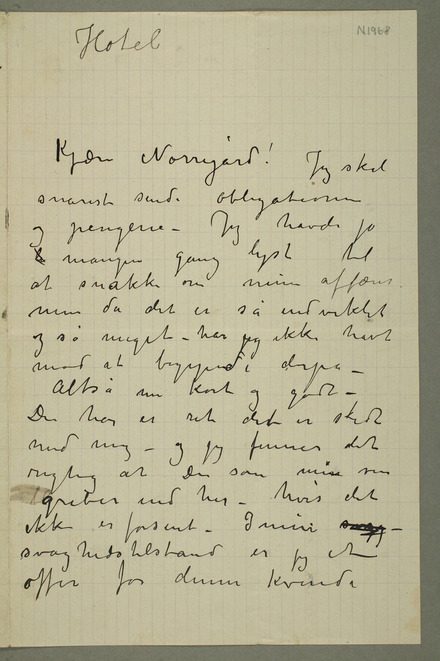 N 1968
Hotel
Kjære Nørregård! Jeg skal
snarest sende obligationerne
og pengene – Jeg havde jo
mangen gang lyst til
at snakke om mine affærer
men da det er så indviklet
og så meget – har jeg ikke havt
mod at begynde derpå –
Altså nu kort og godt –
Du har er ret det er skedt
med mig – og jeg finner det
rigtig at Du som min ven
griber ind her – hvis det
ikke er forsent – I min
svaghedstilstand er jeg et
offer for denne Kvinde